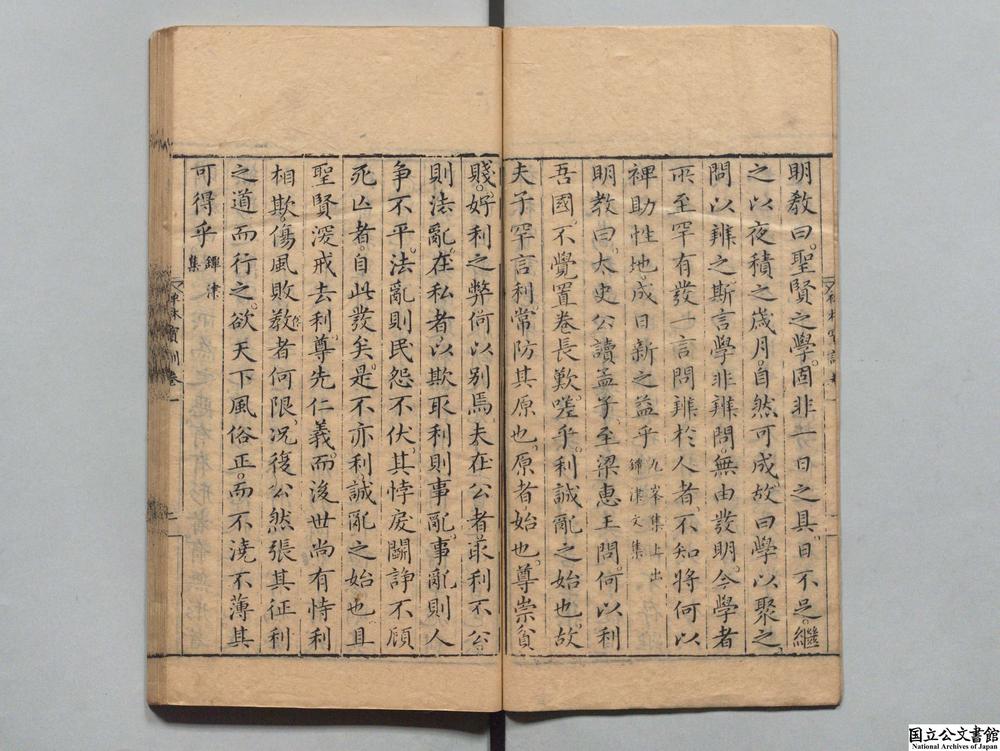 明教曰。聖賢之學。固非一日之具。日不足。繼
之以夜積之歲月。自然可成。故曰學以聚之。
問以辨之斯言學非辨問。無由發明。今學者
所至罕有發一言問辨於人者。不知將何以
裨助性地。成日新之益乎 九峯集上出 鐔津文集
明教曰。太史公讀孟子。至梁惠王問。何以利
吾國。不覺置卷長歎。嗟乎。利誠亂之始也。故
夫子罕言利。常防其原也。原者始也。尊崇貧
賤。好利之弊何以別焉。夫在公者取利不公
則法亂。在私者以欺取利則事亂。事亂則人
争不平。法亂則民怨不伏。其悖戾鬭諍不顧
死亡者。自此發矣。是不亦利誠亂之始也。且
聖賢深戒去利。尊先仁義。而後世尚有恃利
相欺。傷風敗教者何限。况復公然張其征利
之道而行之。欲天下風俗正。而不澆不薄其
可得乎 鐔津集
禪林寳訓 卷一
国立公文書館
National Archives of Japan